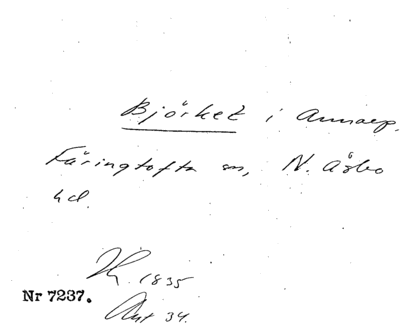 Björket i Annarp.
Färingtofta sn, N. Åsbo
hd.
1835
Nr 7237.
Akt 34.